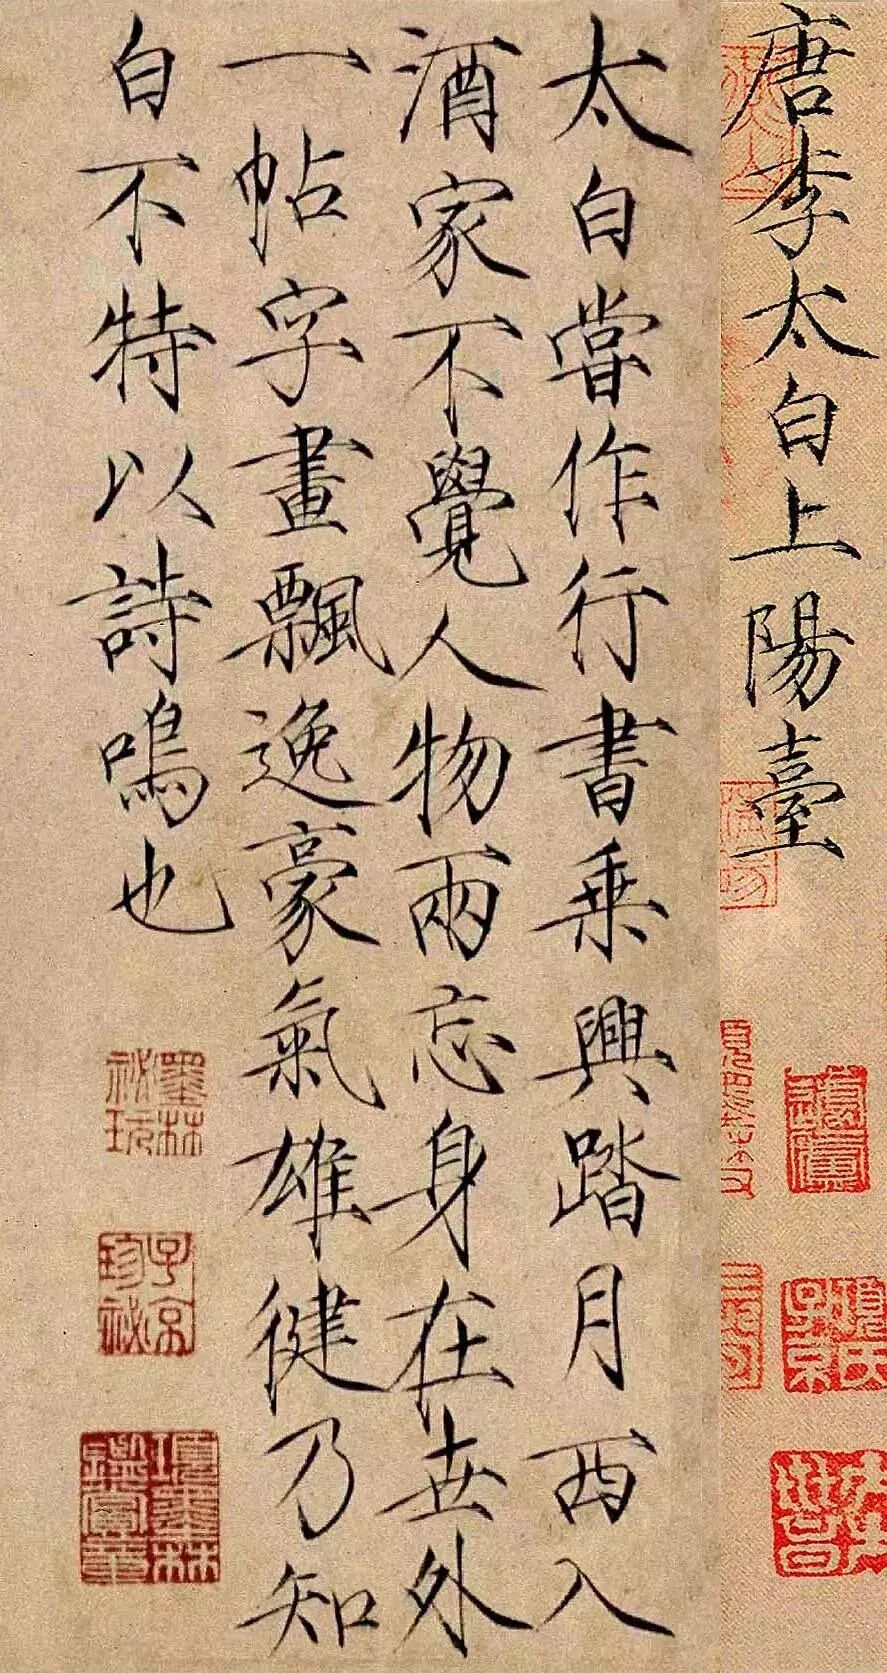 唐李太白上陽臺
太白嘗作行書乘興踏月西入
酒家不覺人物兩忘身在世外
一帖字畫飄逸豪氣雄健乃知
白不特以詩鳴也
墨林祕玩
子京珍祕
項墨林鑑賞章
項氏子京